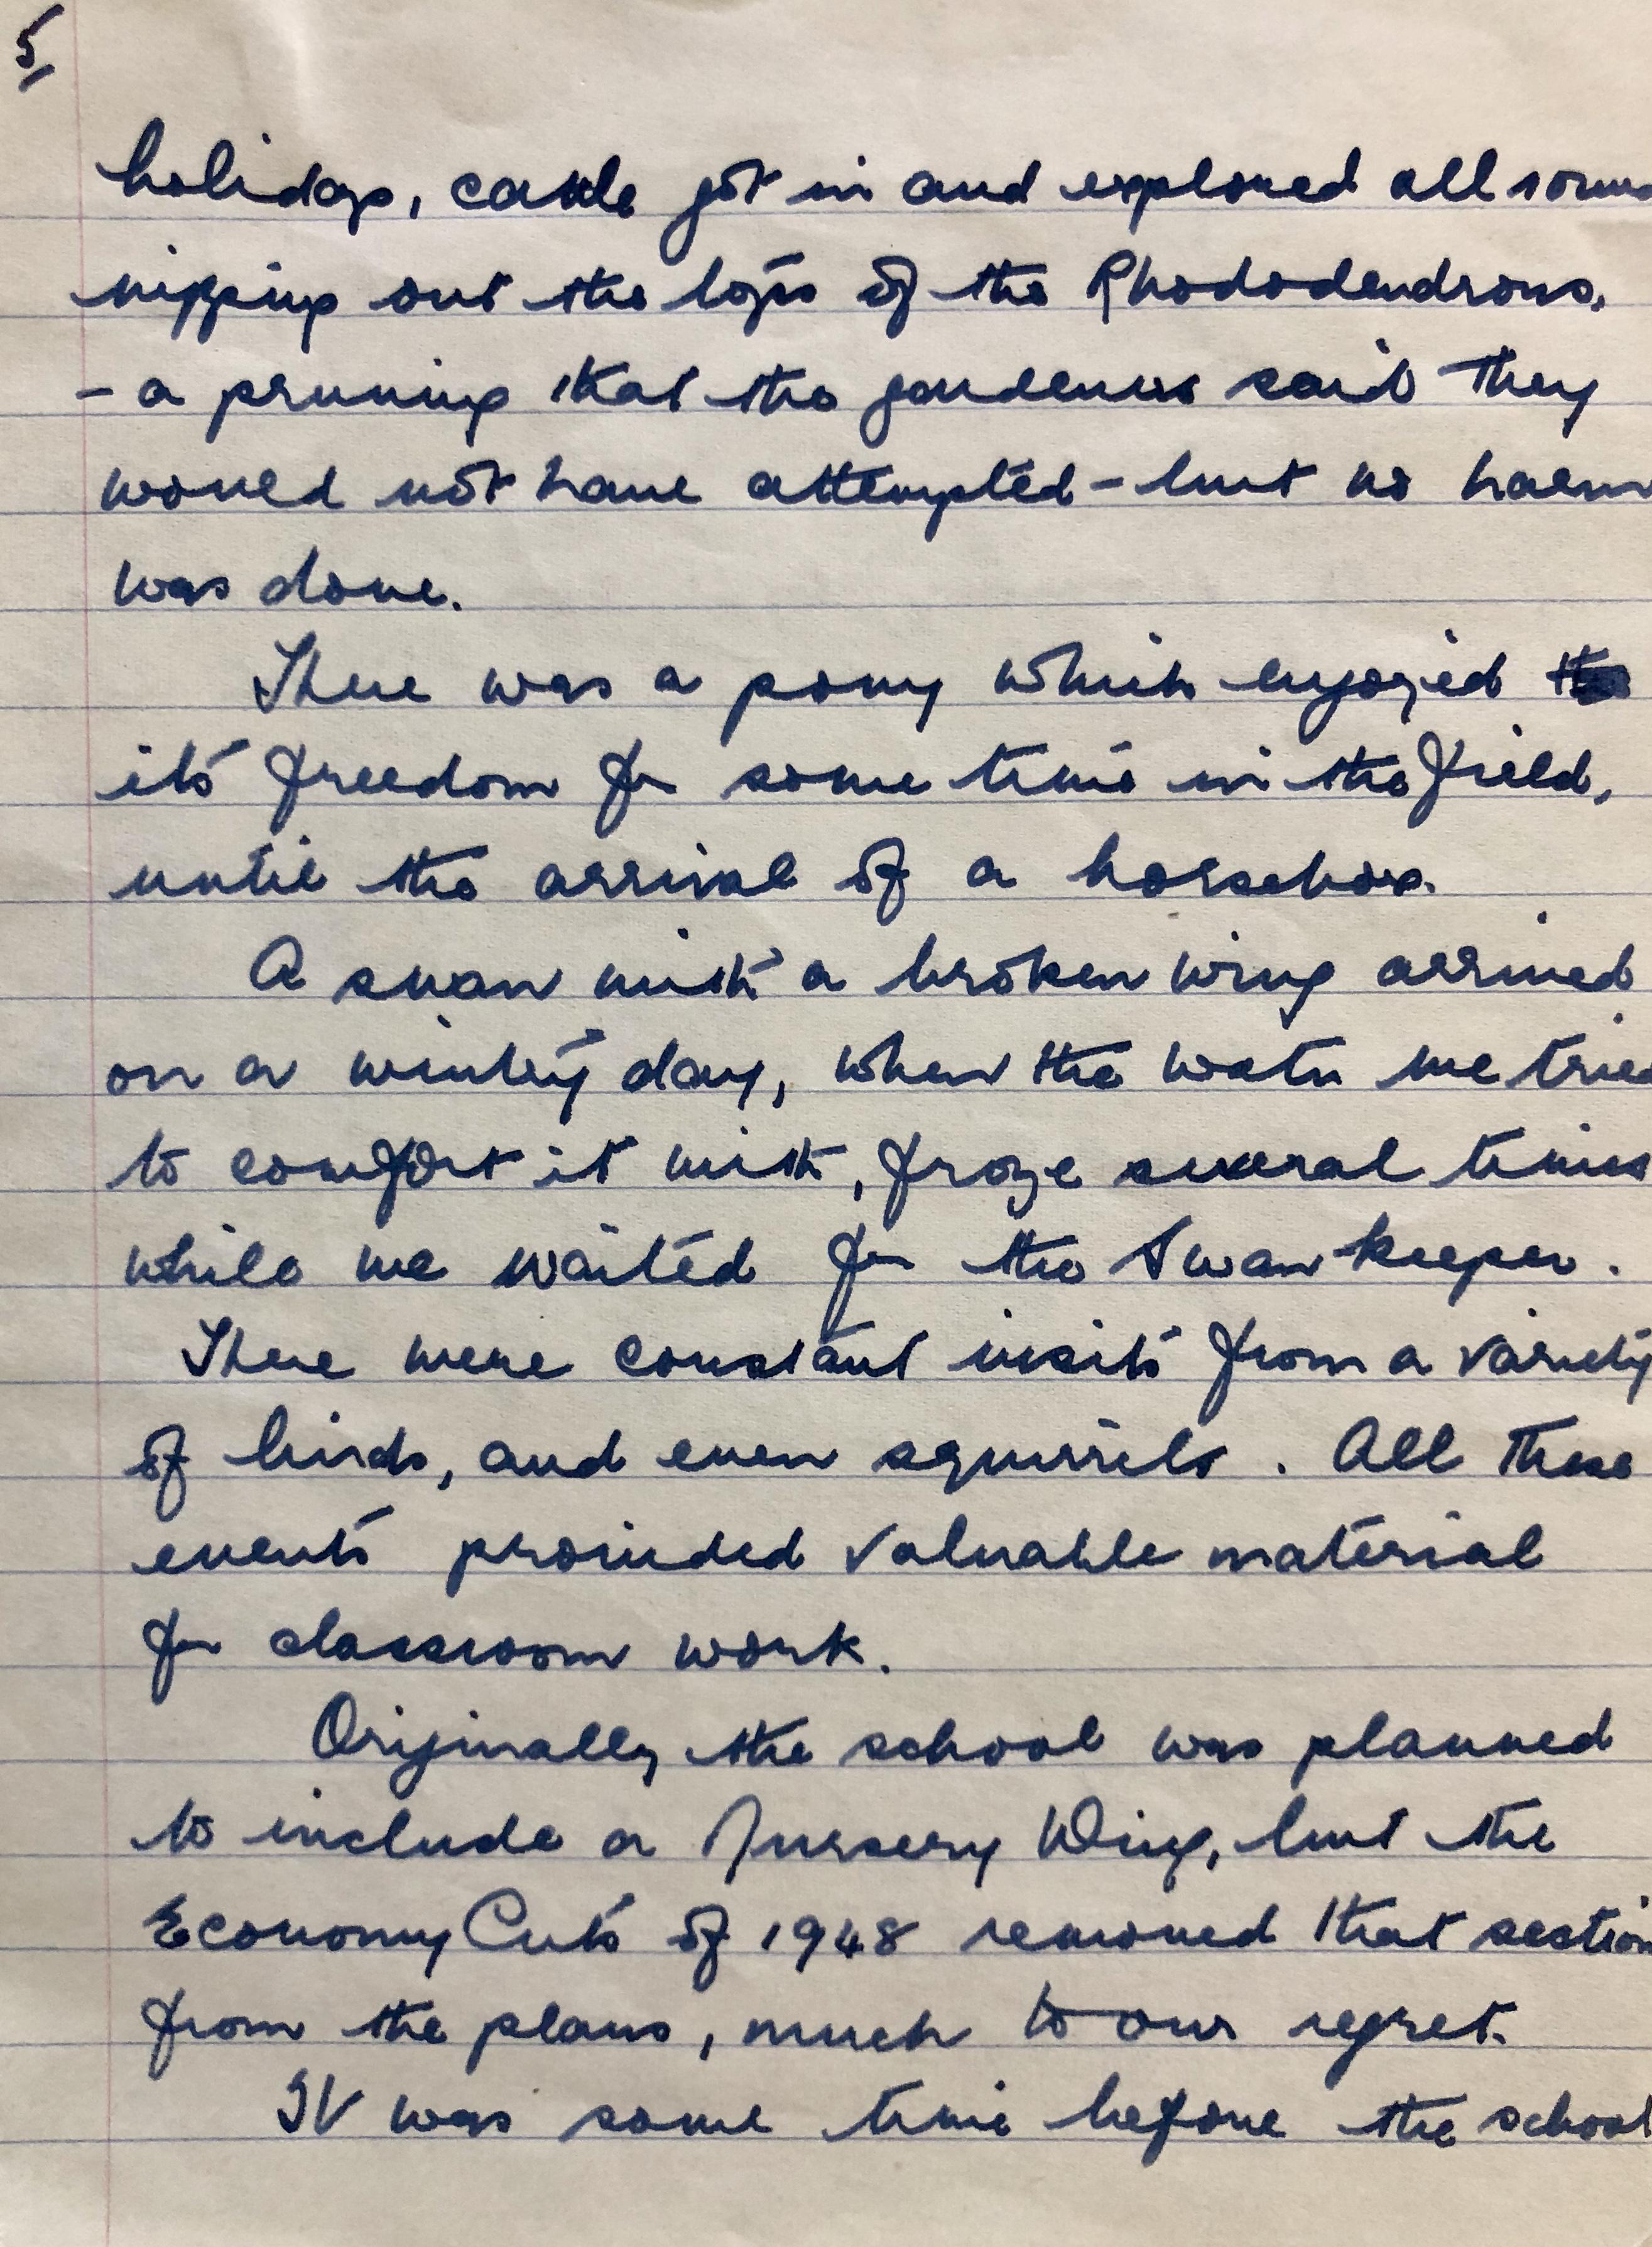 5/
holidays, cattle got in and explored all roun
nipping out the tops of the Rhododendrons,
- a pruning that the gardeners said they
would not have attempted - but no harm
was done.
There was a pony which enjoyed
its freedom for some time in the field,
until the arrival of a horsebox.
A swan with a broken wing arrived
on a wintry day, when the water we tried
to comfort it with, froze several times
while we waited for the Swan keeper.
There were constant visits from a variety
of birds, and even squirrels. All these
events provided valuable material
for classroom work.
Originally the school was planned
to include a Nursery Wing, but the
Economy Cuts of 1948 removed that section
from the plans, much to our regret.
It was some time before the school